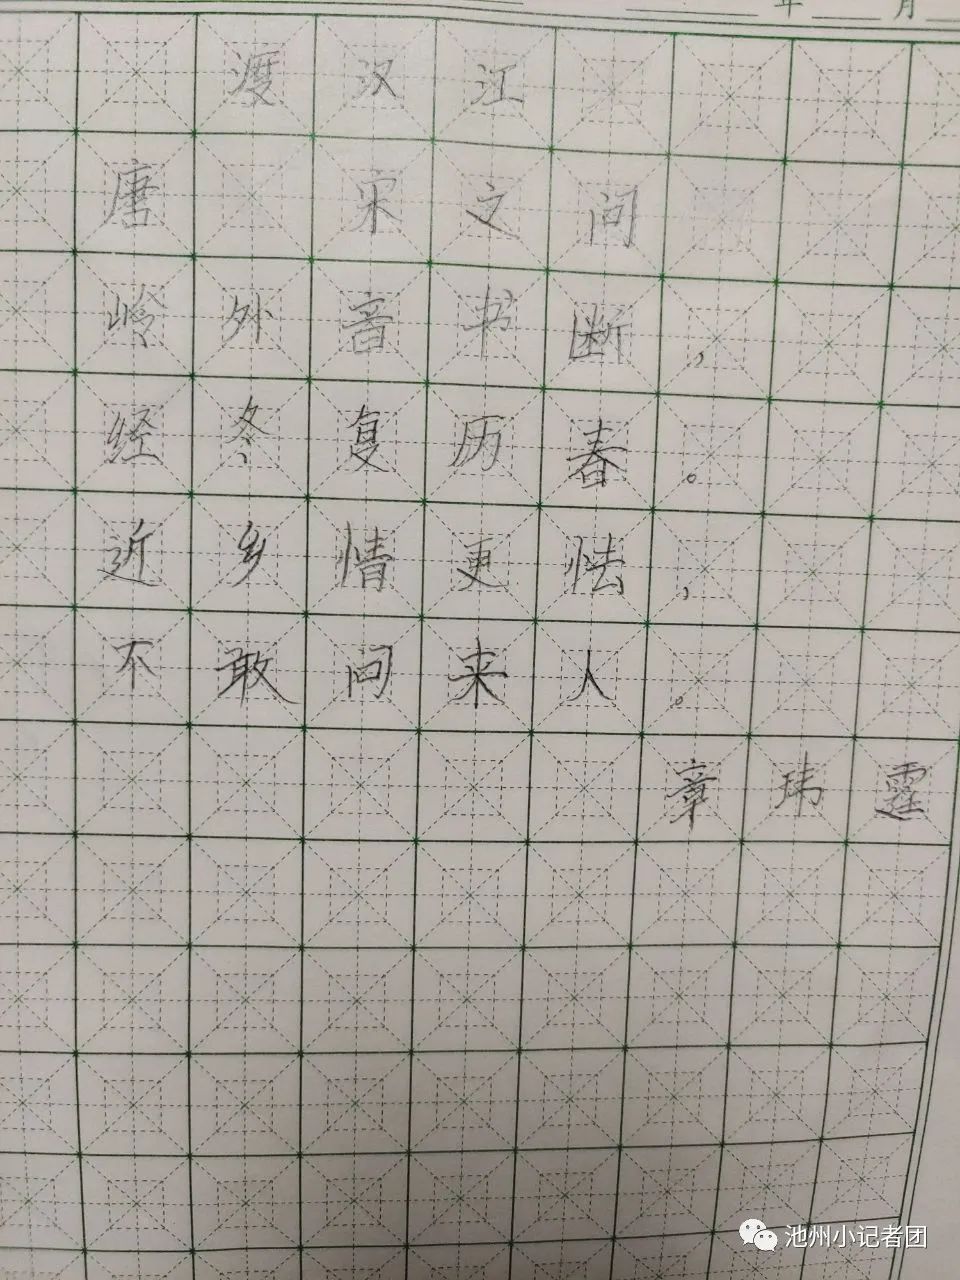 年 月
渡汉江
唐 宋之问
岭外音书断，
经冬复历春。
近乡情更怯，
不敢问来人。
章玮霆
池州小记者团